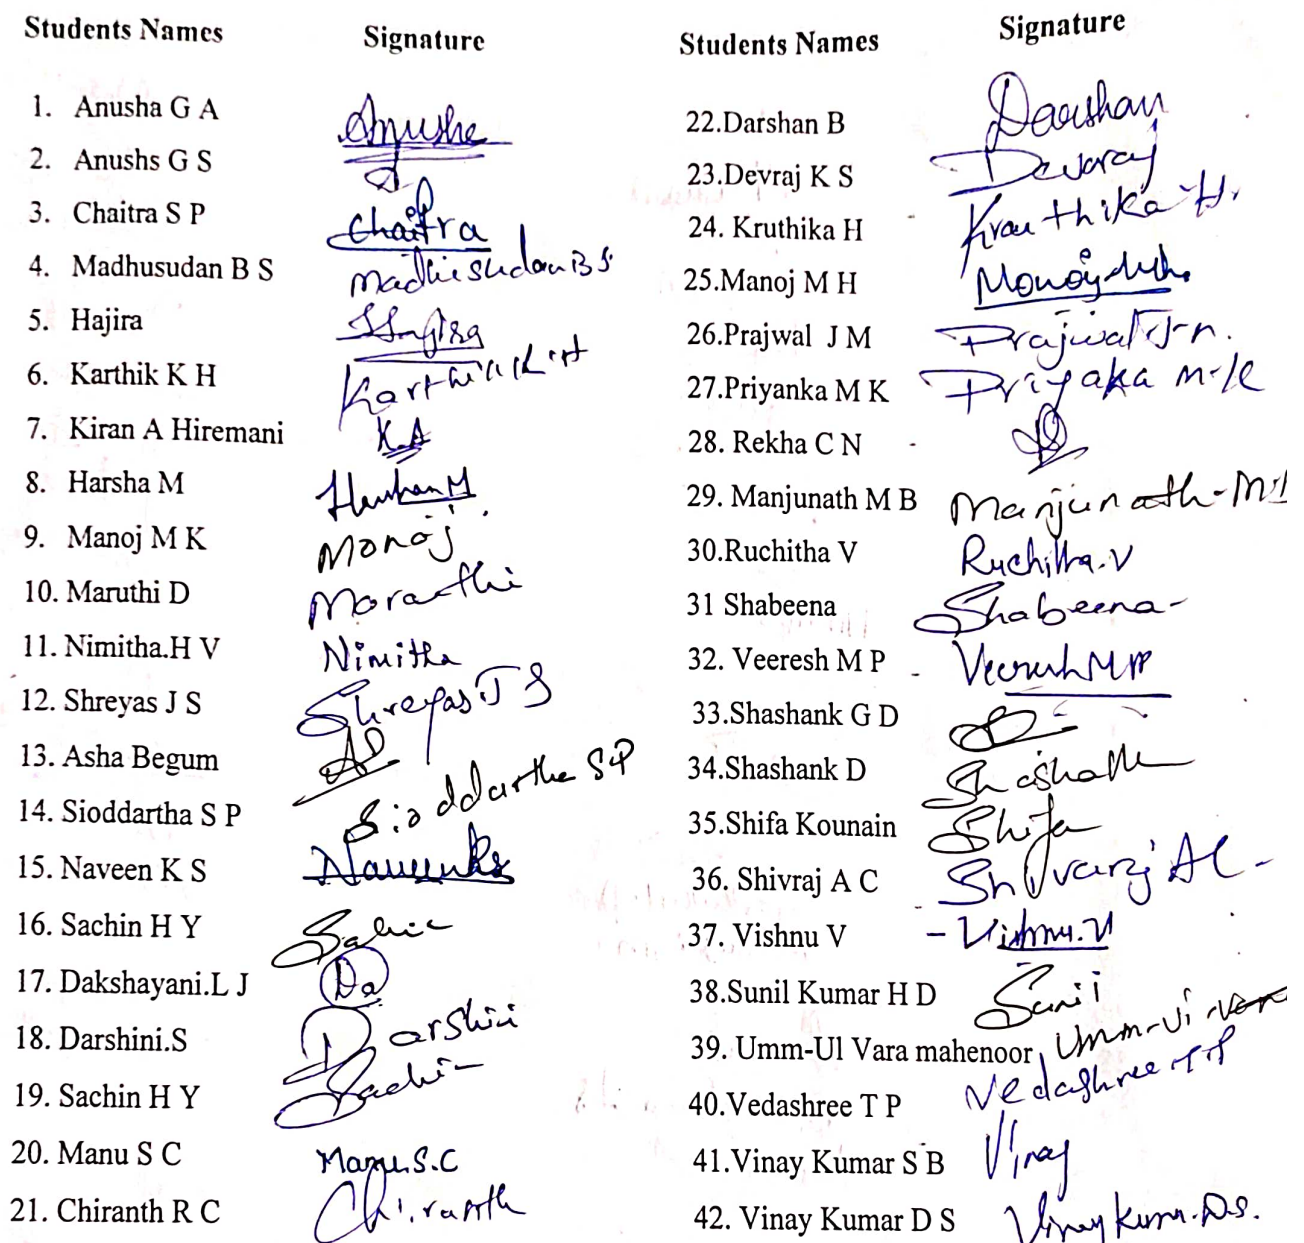 Students Names Signature
1. Anusha G A Anusha
2. Anushs G S
3. Chaitra S P Chaitra
4. Madhusudan B S Madhushdan B S
5. Hajira Hajira
6. Karthik K H Karthik K H
7. Kiran A Hiremani K.A
8. Harsha M
9. Manoj M K Manoj
10. Maruthi D
11. Nimitha.H V Nimitha
12. Shreyas J S Shreyas J S
13. Asha Begum
14. Sioddartha S P Sioddartha S P
15. Naveen K S Naveenks
16. Sachin H Y
17. Dakshayani.L J Da
18. Darshini.S Darshini
19. Sachin H Y
20. Manu S C Manu.S.C
21. Chiranth R C Chiranth
Students Names Signature
22.Darshan B Darshan
23.Devraj K S Devaraj
24. Kruthika H
25.Manoj M H
26.Prajwal J M Prajwal
27.Priyanka M K Priyaka M.K
28. Rekha C N
29. Manjunath M B Manjunath
30.Ruchitha V Ruchitha.V
31 Shabeena Shabeena
32. Veeresh M P Veeresh M P
33.Shashank G D
34.Shashank D
35.Shifa Kounain Shifa
36. Shivraj A C Shivaraj A C
37. Vishnu V Vishnu.V
38.Sunil Kumar H D Sunil
39. Umm-Ul Vara mahenoor
40.Vedashree T P Vedashree T P
41.Vinay Kumar S B Vinay
42. Vinay Kumar D S Vinay Kumar.D.S.